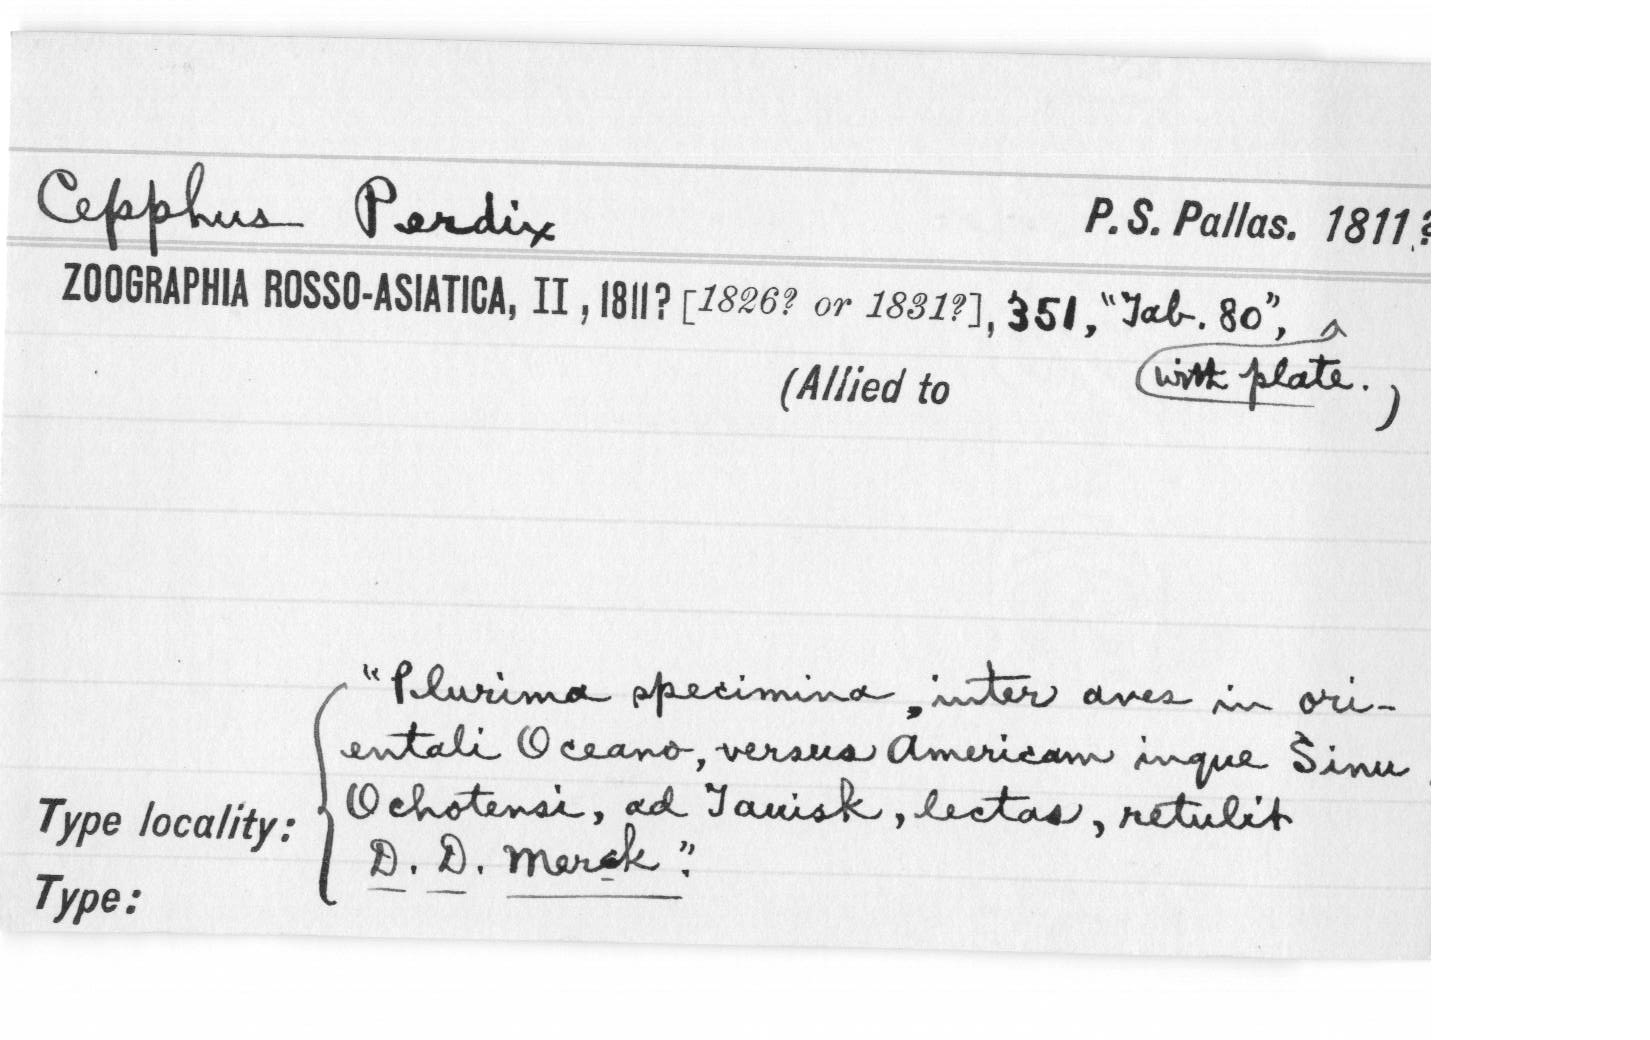 Cepphus Perdix P. S. Pallas. 1811?
ZOOGRAPHIA ROSSO-ASIATICA, II, 1811? [1826? or 1831?], 351, "Tab. 80",
(Allied to with plate. )
"Plurima specimina, inter aves in ori-
entali Oceano, versus Americam inque Sinu
Type locality: Ochotensi, ad Tauisk, lectas, retulit
D. D. Merck".
Type: